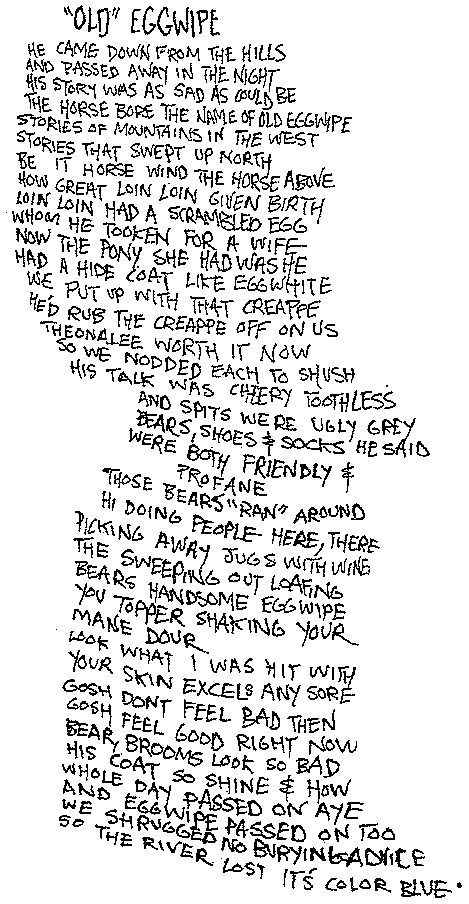 "OLD" EGGWIPE
HE CAME DOWN FROM THE HILLS
AND PASSED AWAY IN THE NIGHT
HIS STORY WAS AS SAD AS COULD BE
THE HORSE BORE THE NAME OF OLD EGGWIPE
STORIES OF MOUNTAINS IN THE WEST
STORIES THAT SWEPT UP NORTH
BE IT HORSE WIND THE HORSE ABOVE
HOW GREAT LOIN LOIN GIVEN BIRTH
LOIN LOIN HAD A SCRAMBLED EGG
WHOM HE TOOKEN FOR A WIFE
NOW THE PONY SHE HAD WAS HE
HAD A HIDE COAT LIKE EGGWHITE
WE PUT UP WITH THAT CREAPPE
HE'D RUB THE CREAPPE OFF ON US
THEONALEE WORTH IT NOW
SO WE NODDED EACH TO SHUSH
HIS TALK WAS CHEERY TOOTHLESS
AND SPITS WERE UGLY GREY
BEARS, SHOES & SOCKS HE SAID
WERE BOTH FRIENDLY &
PROFANE
THOSE BEARS "RAN" AROUND
HI DOING PEOPLE HERE, THERE
PICKING AWAY JUGS WITH WINE
THE SWEEPING OUT LOAFING
BEARS HANDSOME EGGWIPE
YOU TOPPER SHAKING YOUR
MANE DOUR
LOOK WHAT I WAS HIT WITH
YOUR SKIN EXCELS ANY SORE
GOSH DONT FEEL BAD THEN
GOSH FEEL GOOD RIGHT NOW
BEAR, BROOMS LOOK SO BAD
HIS COAT SO SHINE & HOW
WHOLE DAY PASSED ON AYE
AND EGGWIPE PASSED ON TOO
WE SHRUGGED NO BURYING ADVICE
SO THE RIVER LOST IT'S COLOR BLUE.